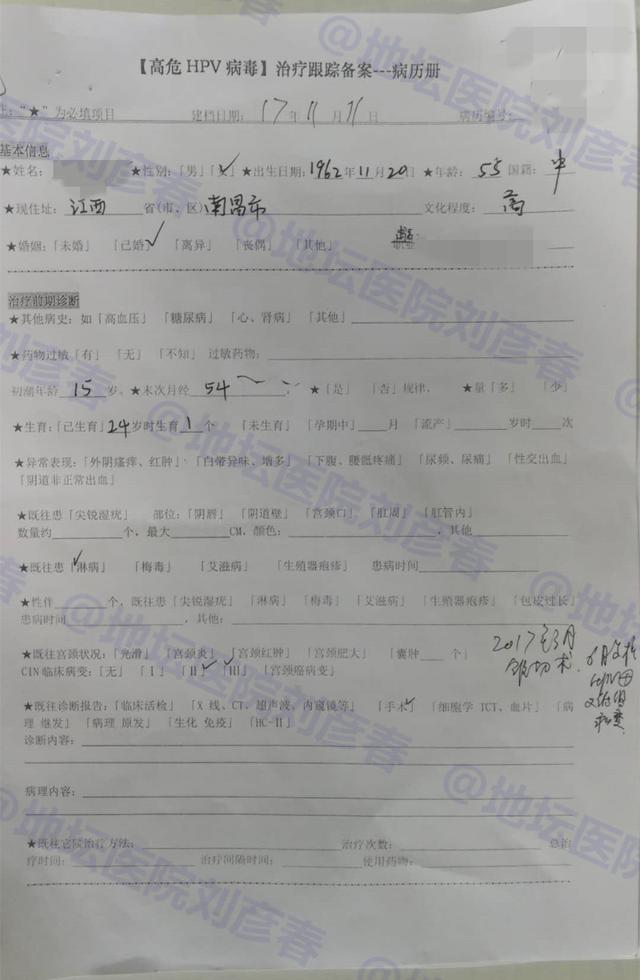 【高危 HPV 病毒】治疗跟踪备案---病历册
注:"★"为必填项目 建档日期: 17 年 11 月 11 日 病历编号:
基本信息
★姓名: ★性别:「男」「女」★出生日期: 1962 年 11 月 20 日 ★年龄: 55 国籍: 中
★现住址: 江西 省(市、区) 南昌市 文化程度: 高
★婚姻:「未婚」 「已婚」✓ 「离异」 「丧偶」 「其他」 职业
治疗前期诊断
★其他病史: 如「高血压」 「糖尿病」 「心、肾病」 「其他」
★药物过敏「有」 「无」 「不知」 过敏药物:
初潮年龄 15 岁。★末次月经 54 ; ★「是」 「否」规律, ★量「多」 「少」
★生育:「已生育」 24 岁时生育 1 个 「未生育」 「孕期中」 月 「流产」 岁时 次
★异常表现:「外阴瘙痒、红肿」、「白带异味、增多」 「下腹、腰骶疼痛」 「尿频、尿痛」 「性交出血」
「阴道非正常出血」
★既往患「尖锐湿疣」 部位:「阴唇」 「阴道壁」 「宫颈口」 「肛周」 「肛管内」
数量约 个, 最大 CM, 颜色: , 其他
★既往患「淋病」 「梅毒」 「艾滋病」 「生殖器疱疹」 患病时间
★性伴 个, 既往患「尖锐湿疣」 「淋病」 「梅毒」 「艾滋病」 「生殖器疱疹」 「包皮过长」
患病时间 , 其他:
★既往宫颈状况:「光滑」 「宫颈炎」 「宫颈红肿」 「宫颈肥大」 「囊肿 个」 2017年3月
CIN 临床病变:「无」 「I」 「II」✓ 「III」 「宫颈癌病变」
★既往诊断报告:「临床活检」 「X 线、CT、超声波、内窥镜等」 「手术」 「细胞学 TCT、血片」 「病
理 继发」 「病理 原发」 「生化 免疫」 「HC-II」
诊断内容:
病理内容:
★既往它院治疗方法: 治疗次数: 总治
疗时间: 治疗间隔时间: 使用药物:
@地坛医院刘彦春